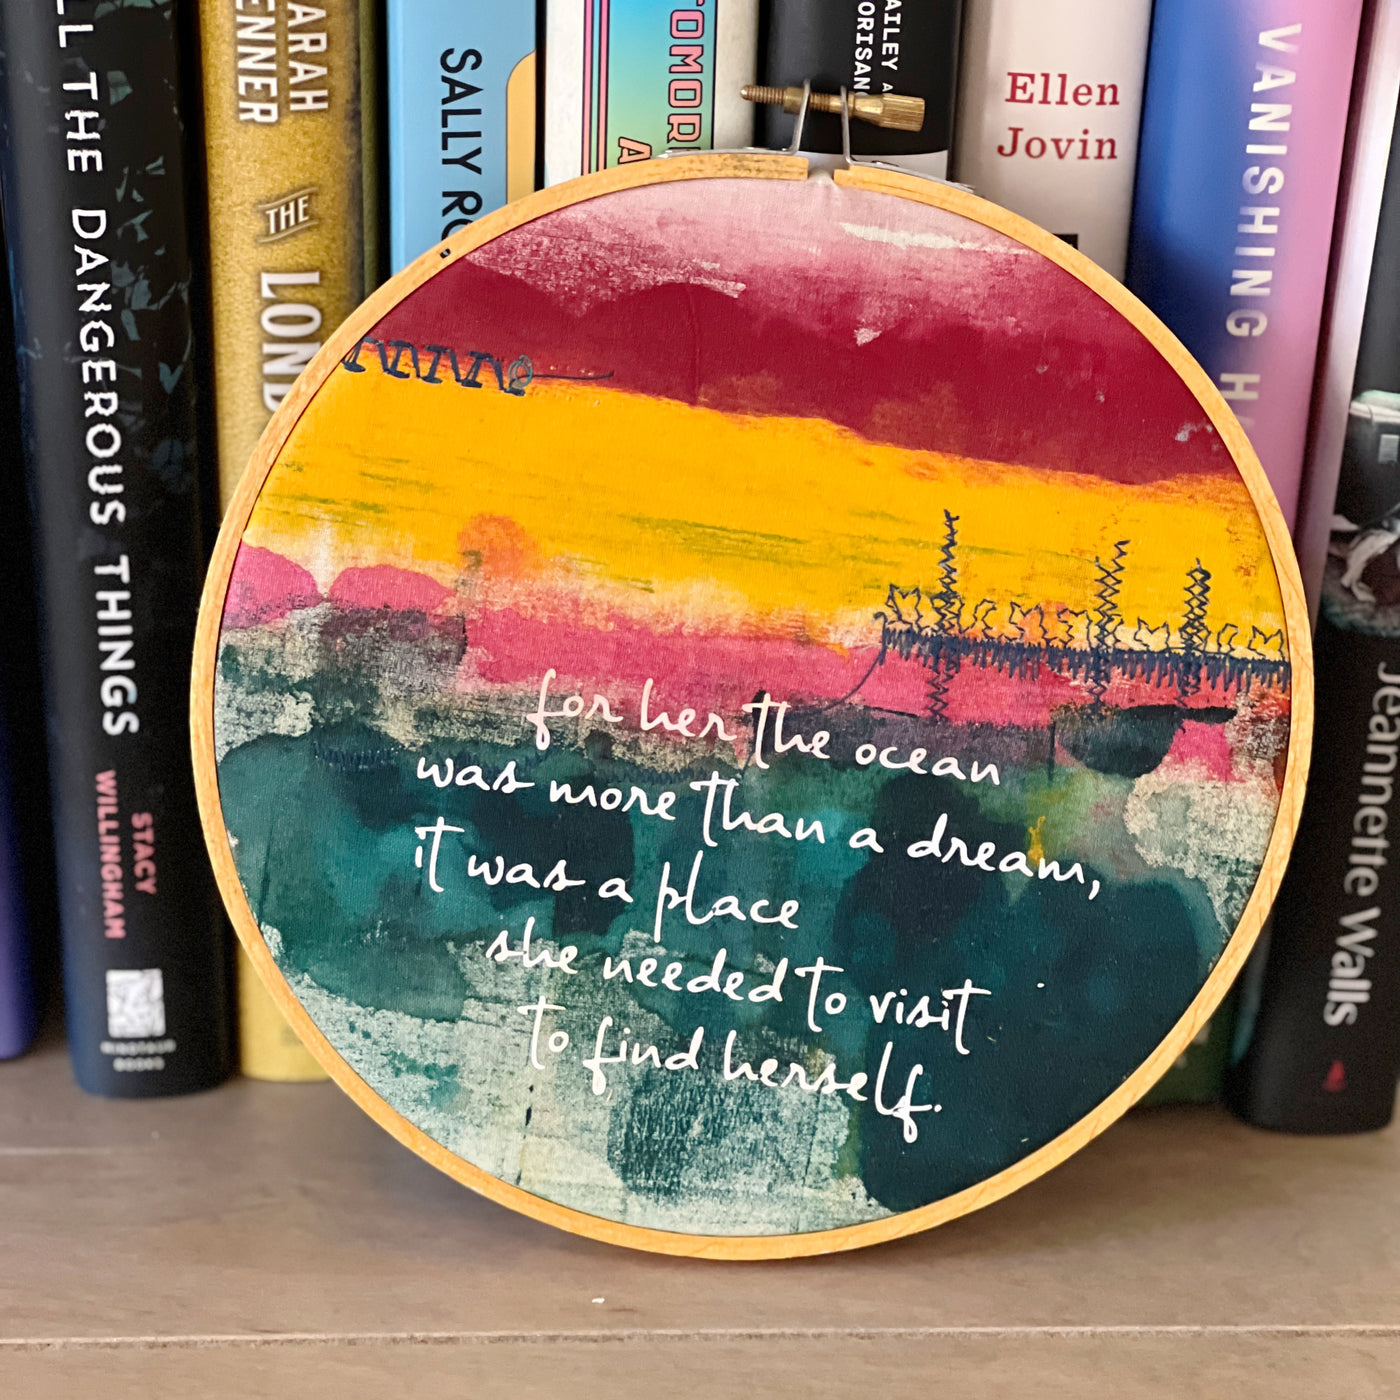 LL THE DANGEROUS THINGS
STACY
WILLINGHAM
ARAH
ENNER
THE
LOND
SALLY RO
TOMOR
A
AILEY A
ORISAN
Ellen
Jovin
VANISHING H
Jeannette Walls
for her the ocean
was more than a dream,
it was a place
she needed to visit
to find herself.